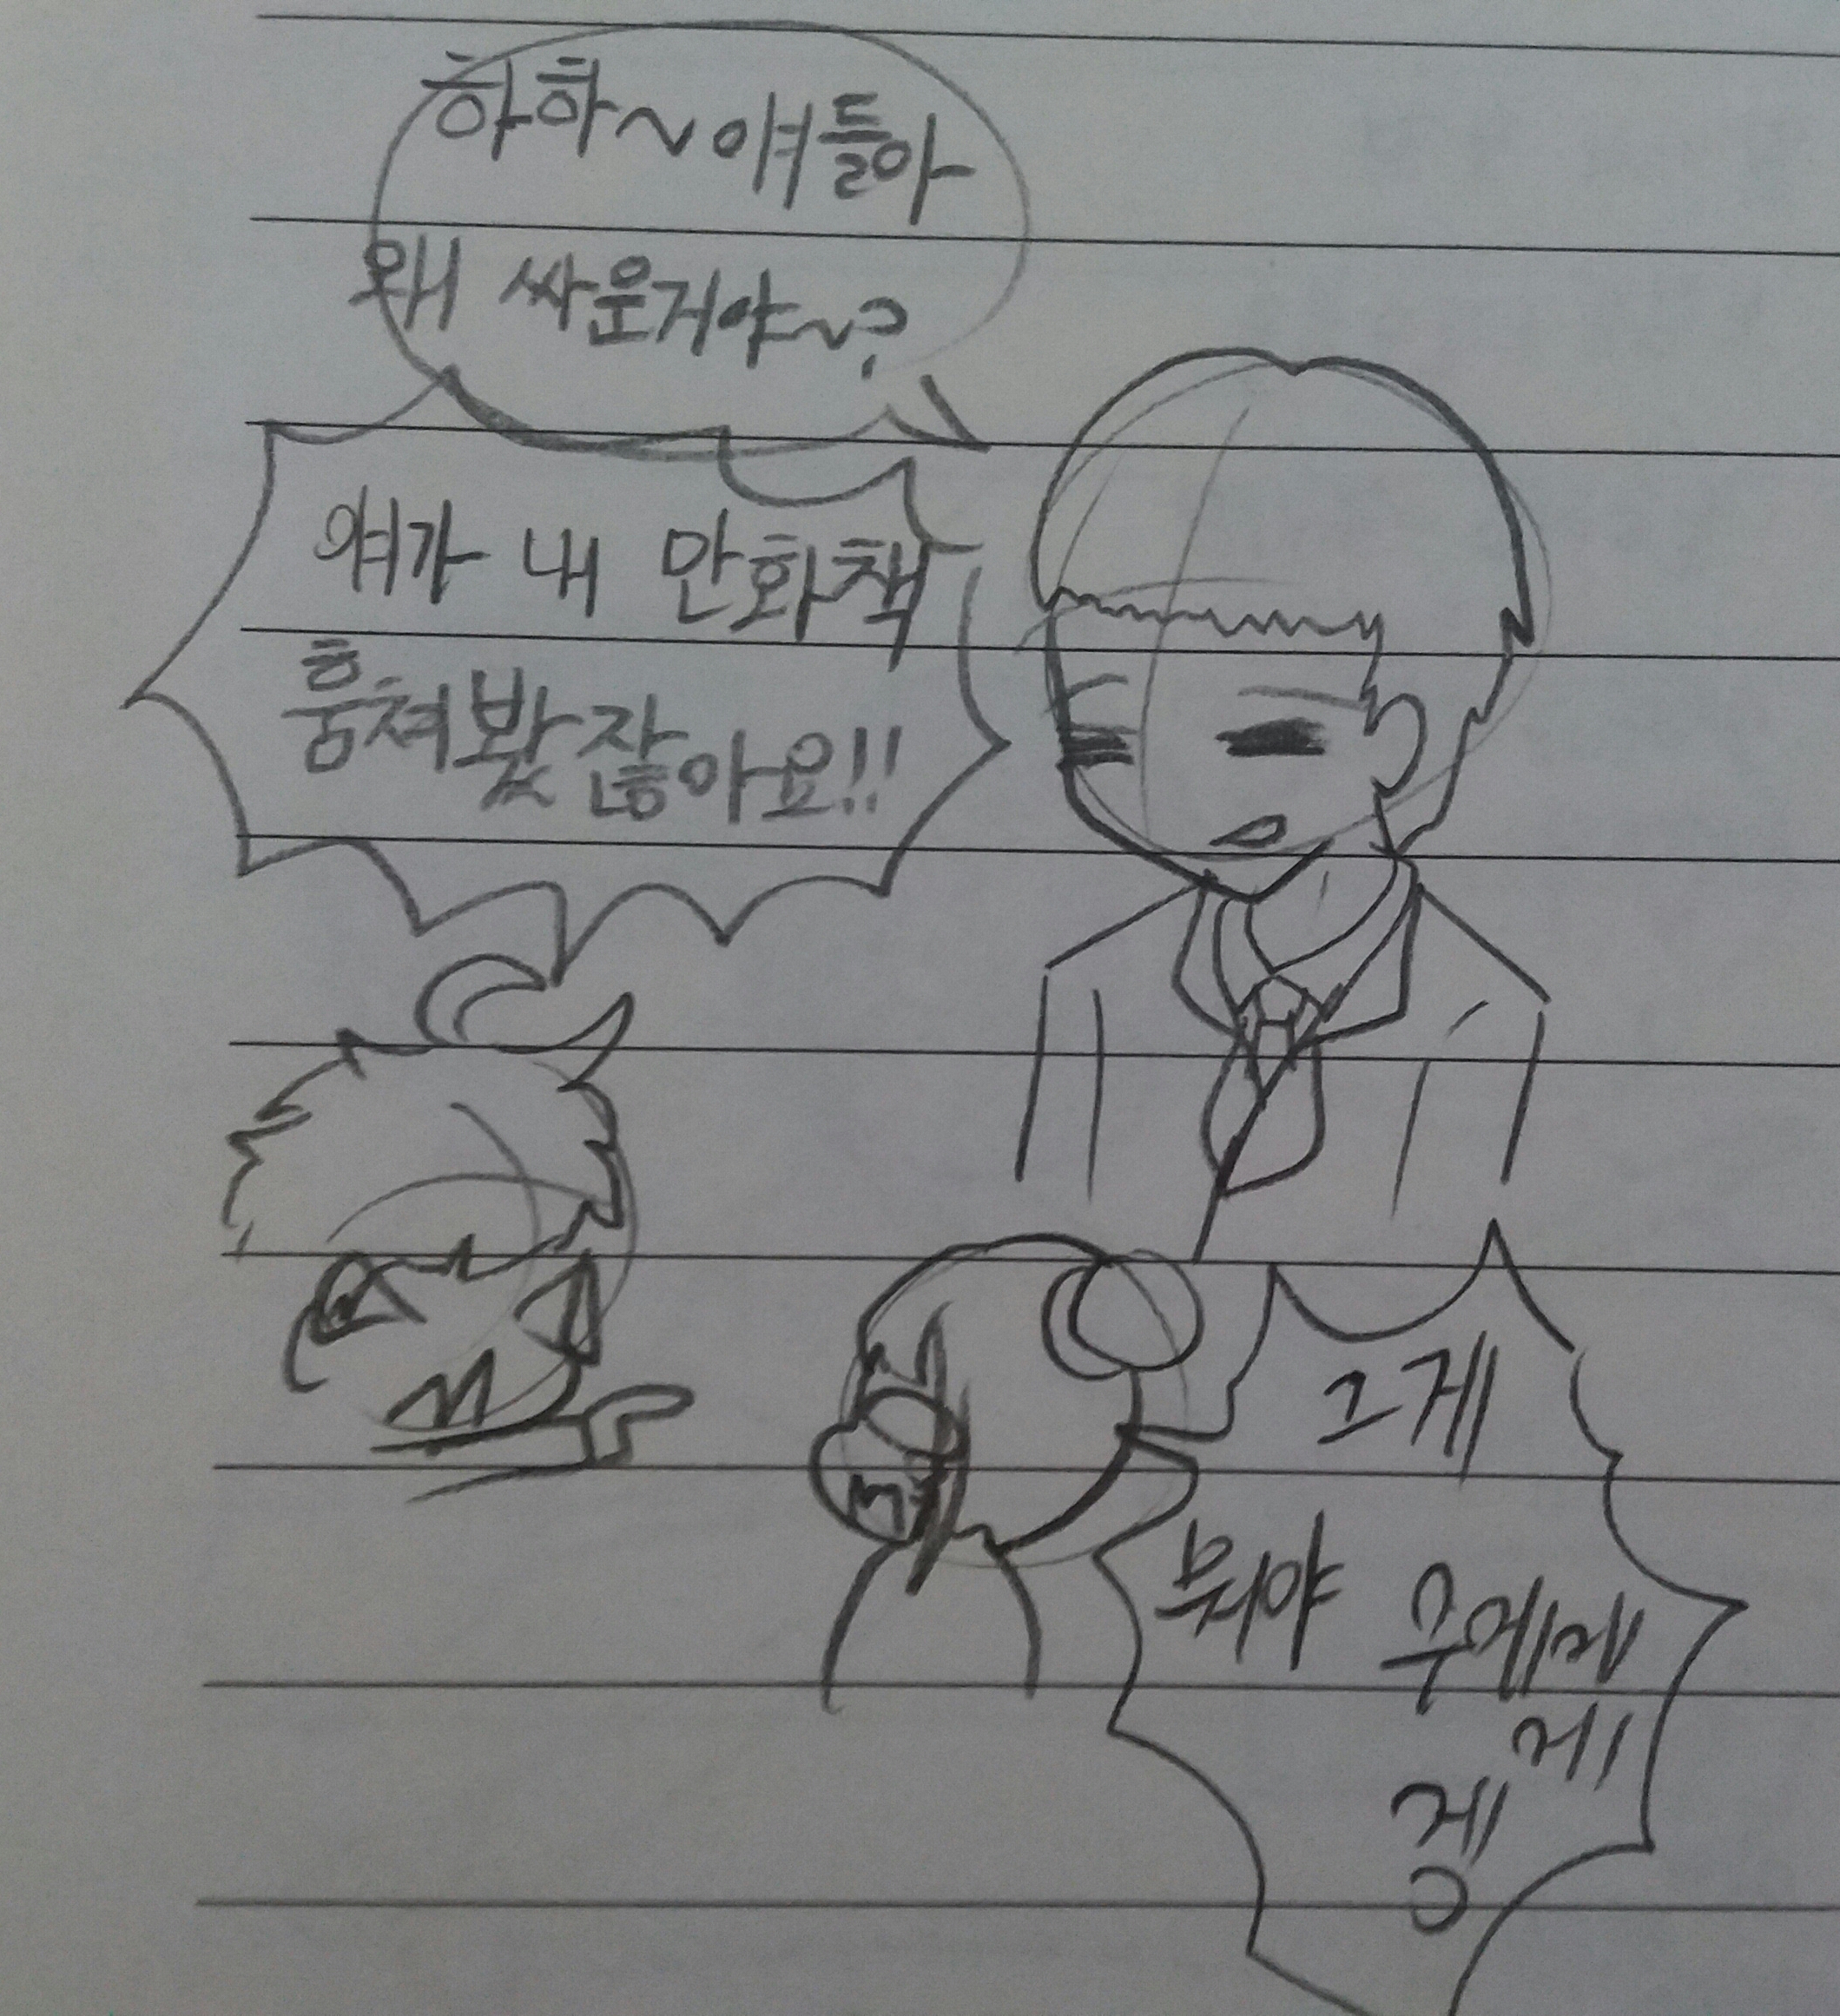 하하~ 얘들아
왜 싸운거야~?
얘가 내 만화책
훔쳐봤잖아요!!
그게
뭐야 우에에
에
겡